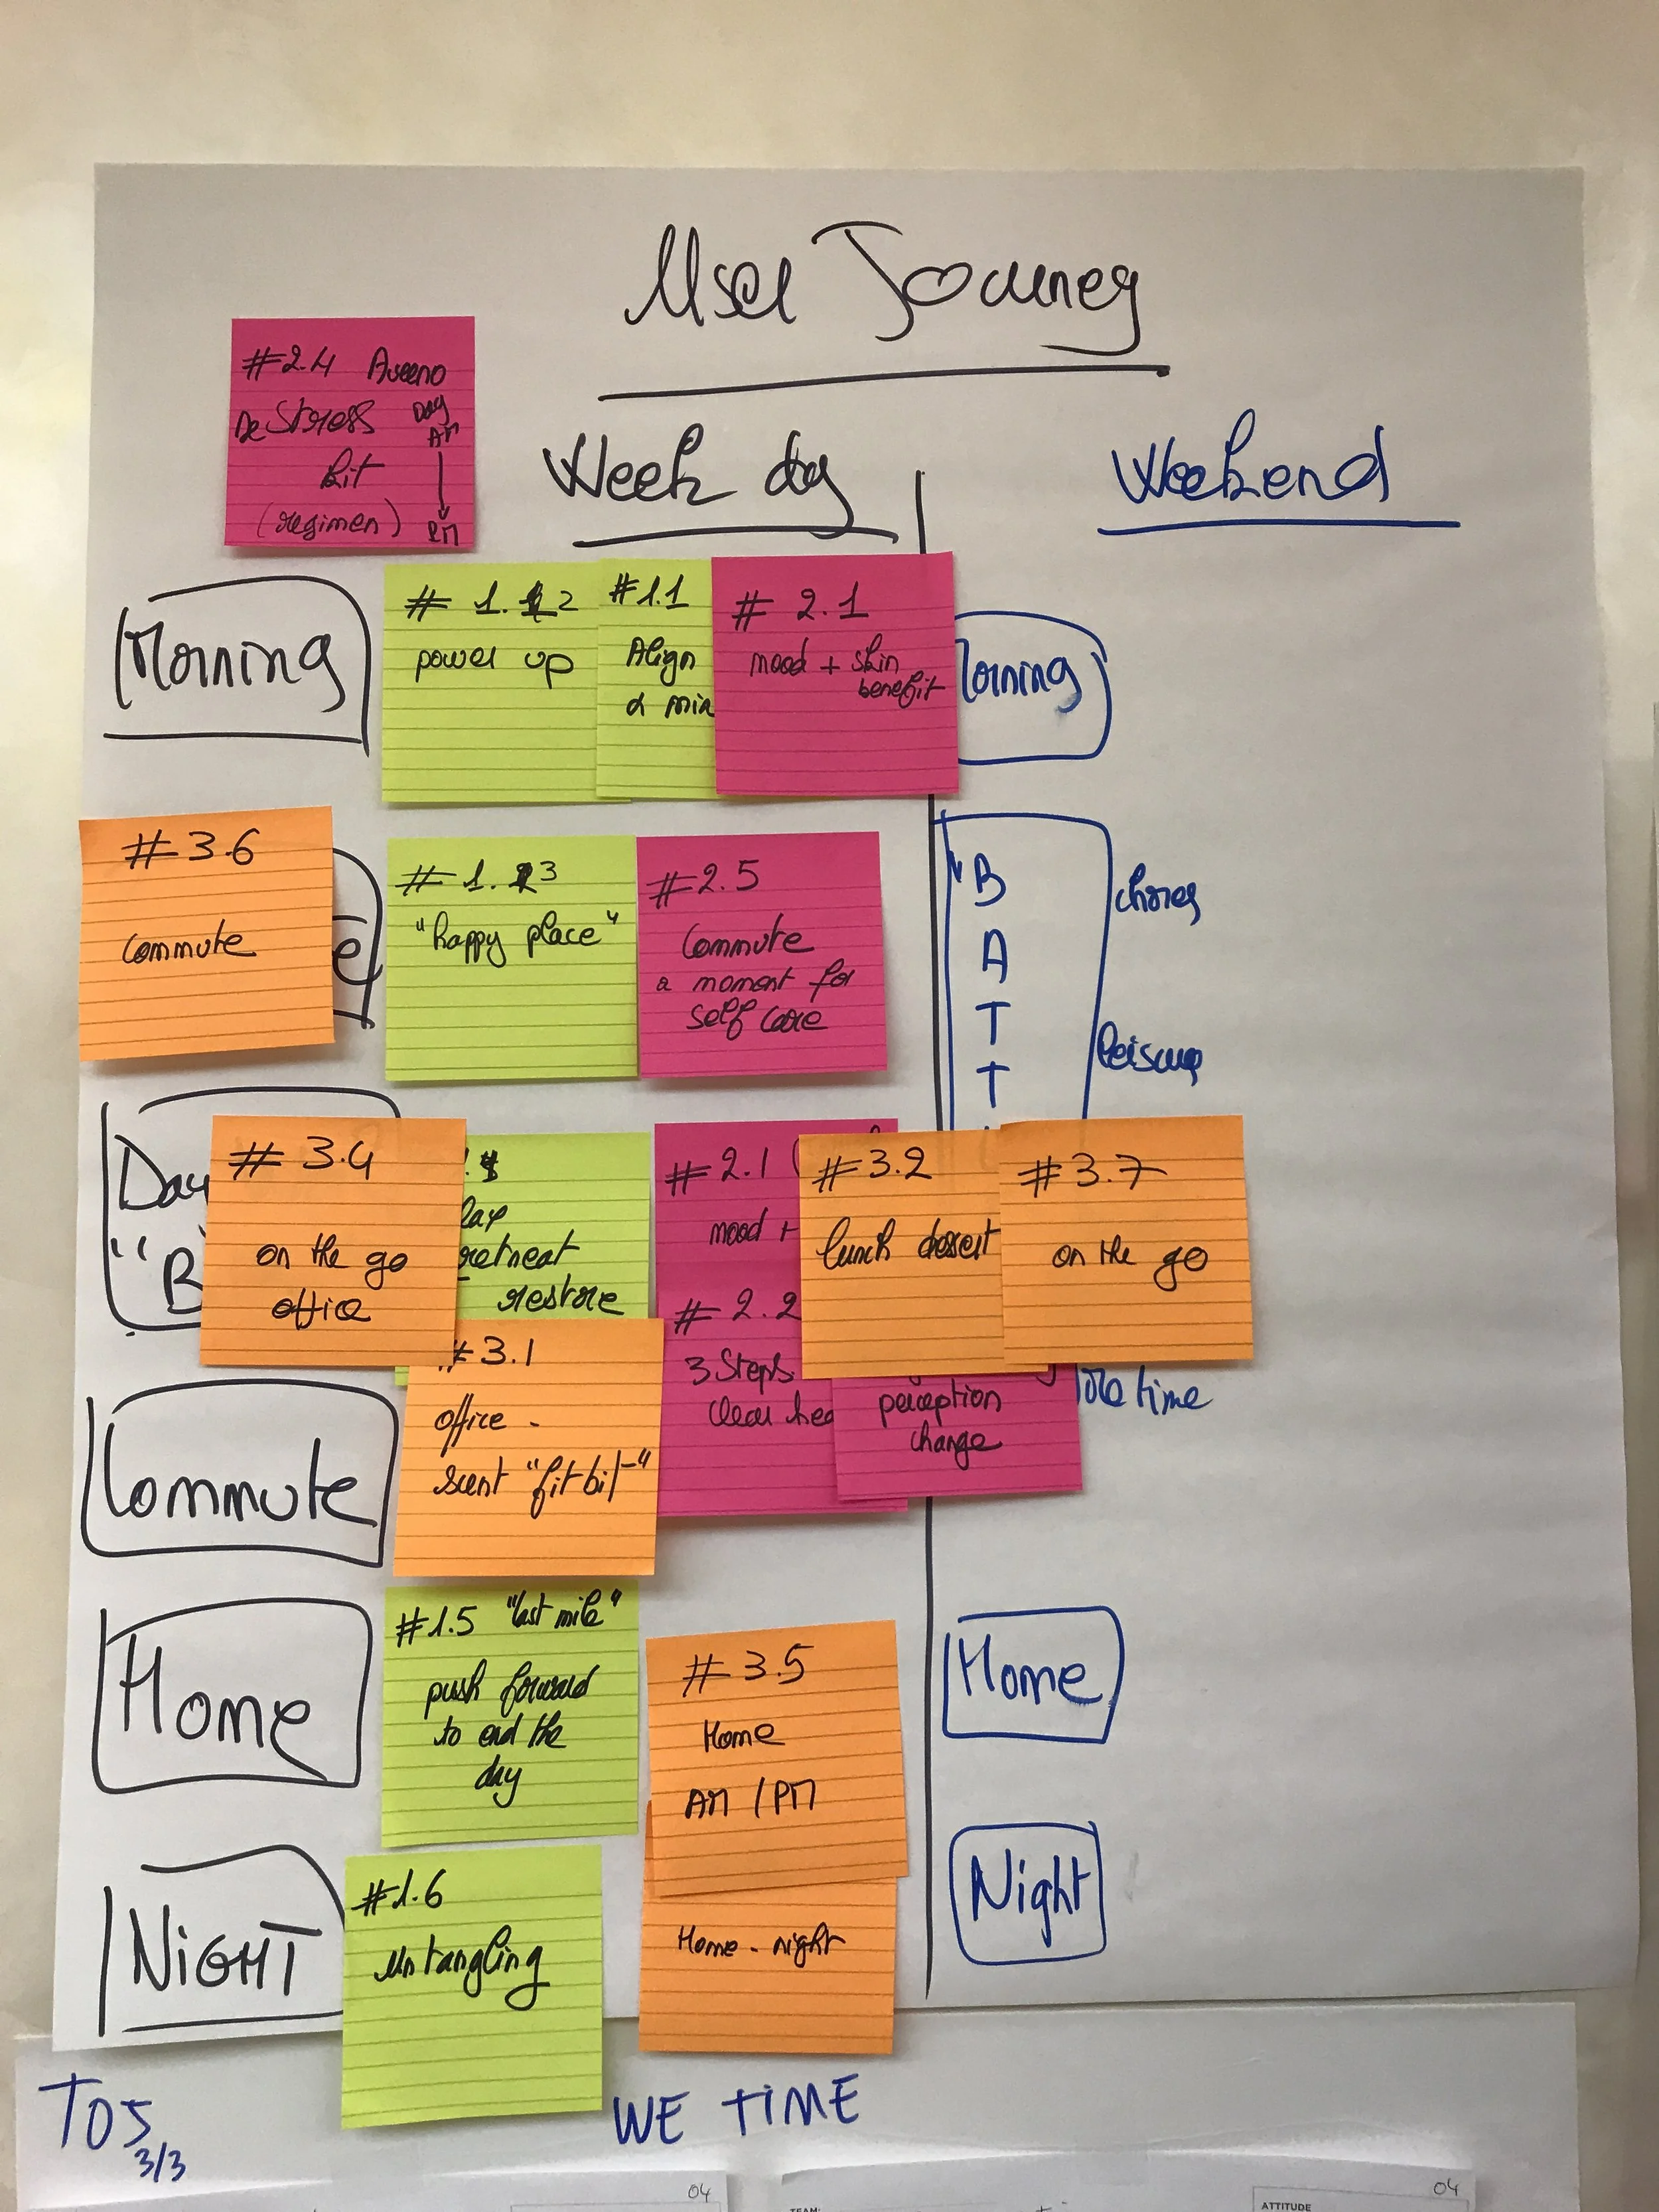 User Journey
#2.4 Aveeno
DeStress Day
AM
kit
(regimen) PM
Week day
Weekend
Morning
# 1.2
power up
#1.1
Align
& mix
# 2.1
mood + skin
benefit
orning
#3.6
Commute
e
# 1.3
"happy place"
#2.5
Commute
a moment for
self care
"B
A
T
T
chores
leisure
Day
"B
# 3.4
on the go
office
retreat
restore
#2.1
mood +
#2.2
3 Steps
clear hea
#3.2
lunch desert
#3.7
on the go
perception
change
time
Commute
#3.1
office -
scent "fitbit"
Home
#1.5 "last mile"
push forward
to end the
day
#3.5
Home
AM / PM
Home
NIGHT
#1.6
untangling
Home - night
Night
TO5
3/3
WE TIME
04
TEAM:
ATTITUDE
04